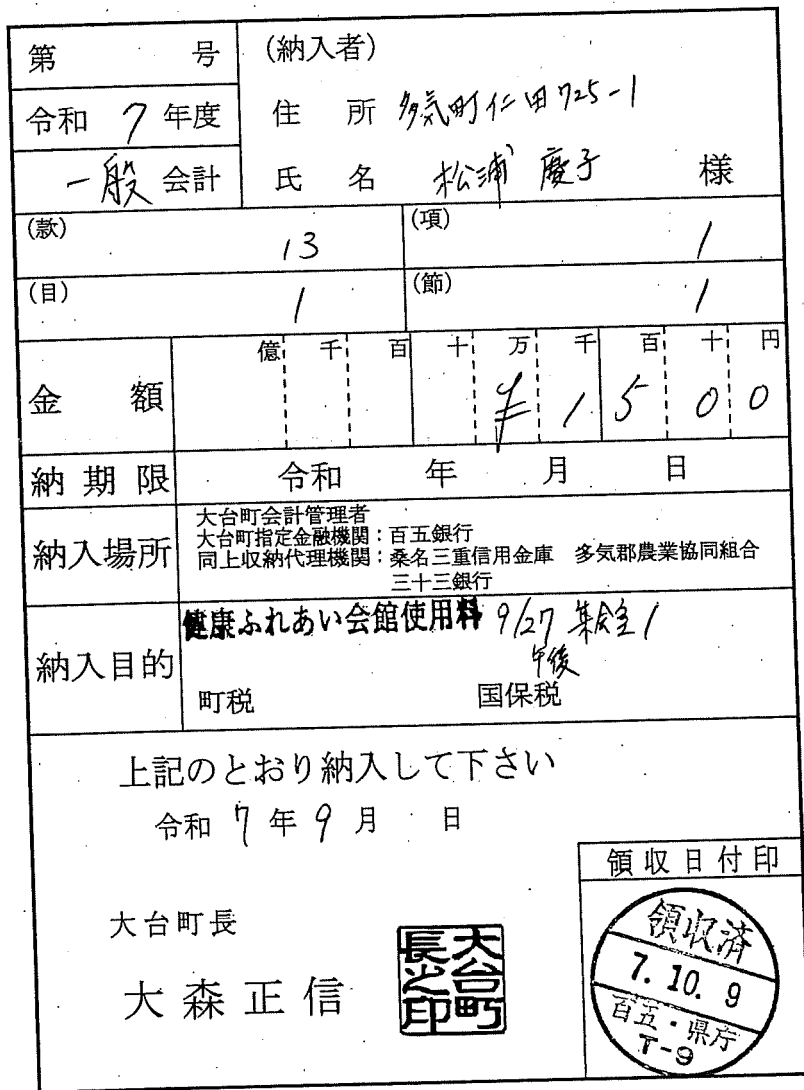 第　　　号
(納入者)
令和 7 年度
住　所 多気町仁田725-1
一般 会計
氏　名 松浦 慶子 様
(款) 13
(項) 1
(目) 1
(節) 1
金　額
億 千 百 十 万 千 百 十 円
¥ 1 5 0 0
納期限 令和　年　月　日
納入場所
大台町会計管理者
大台町指定金融機関：百五銀行
同上収納代理機関：桑名三重信用金庫　多気郡農業協同組合
三十三銀行
納入目的
健康ふれあい会館使用料 9/27 集会室1
午後
町税　国保税
上記のとおり納入して下さい
令和 7 年 9 月　日
領収日付印
大台町長
大森正信
大台町長之印
領収済
7. 10. 9
百五・県庁
T-9